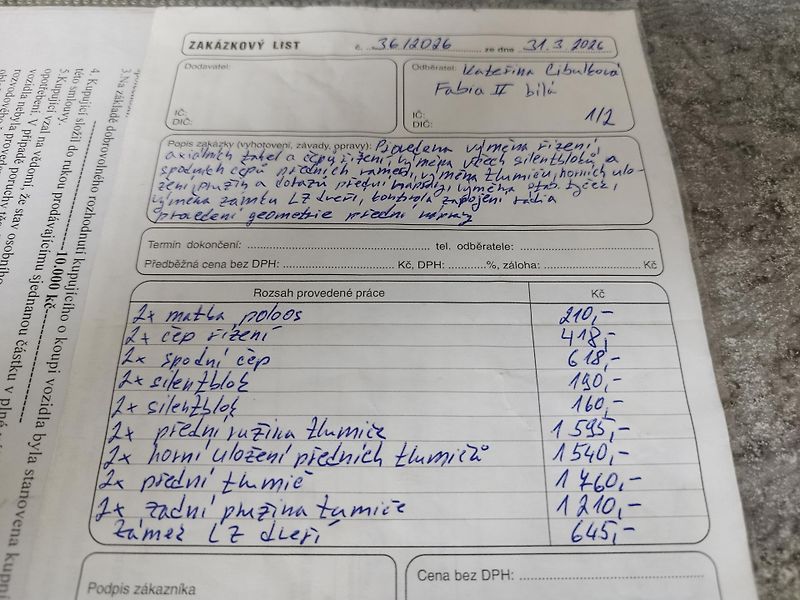 ZAKÁZKOVÝ LIST č. 36/2026 ze dne 31.3.2026
Dodavatel:
IČ:
DIČ:
Odběratel: Kateřina Cibulková
Fabia II bílá
IČ: 1/2
DIČ:
Popis zakázky (vyhotovení, závady, opravy): Provedena výměna řízení,
axiálních táhel a čepů řízení, výměna všech silentbloků a
spodních čepů předních ramen, výměna tlumičů, horních ulo-
žení, pružin a dorazů přední nápravy, výměna stab. tyček,
výměna zámku LZ dveří, kontrola zapojení rádia
provedení geometrie přední nápravy
Termín dokončení: tel. odběratele:
Předběžná cena bez DPH: Kč, DPH: %, záloha: Kč
Rozsah provedené práce Kč
2x matka poloos 210,-
2x čep řízení 418,-
2x spodní čep 618,-
2x silentblok 190,-
2x silentblok 160,-
2x přední pružina tlumiče 1 595,-
2x horní uložení předních tlumičů 1 540,-
2x přední tlumič 1 760,-
2x zadní pružina tlumiče 1 210,-
Zámek LZ dveří 645,-
Podpis zákazníka
Cena bez DPH:
3. Na základě dobrovolného rozhodnutí kupujícího o koupi vozidla byla stanovena kupní
10.000 kč
4. Kupující složil do rukou prodávajícímu sjednanou částku v plné
této smlouvy.
5. Kupující vzal na vědomí, že stav osobního
opotřebení. V případě poruchy
vozidla nebyla